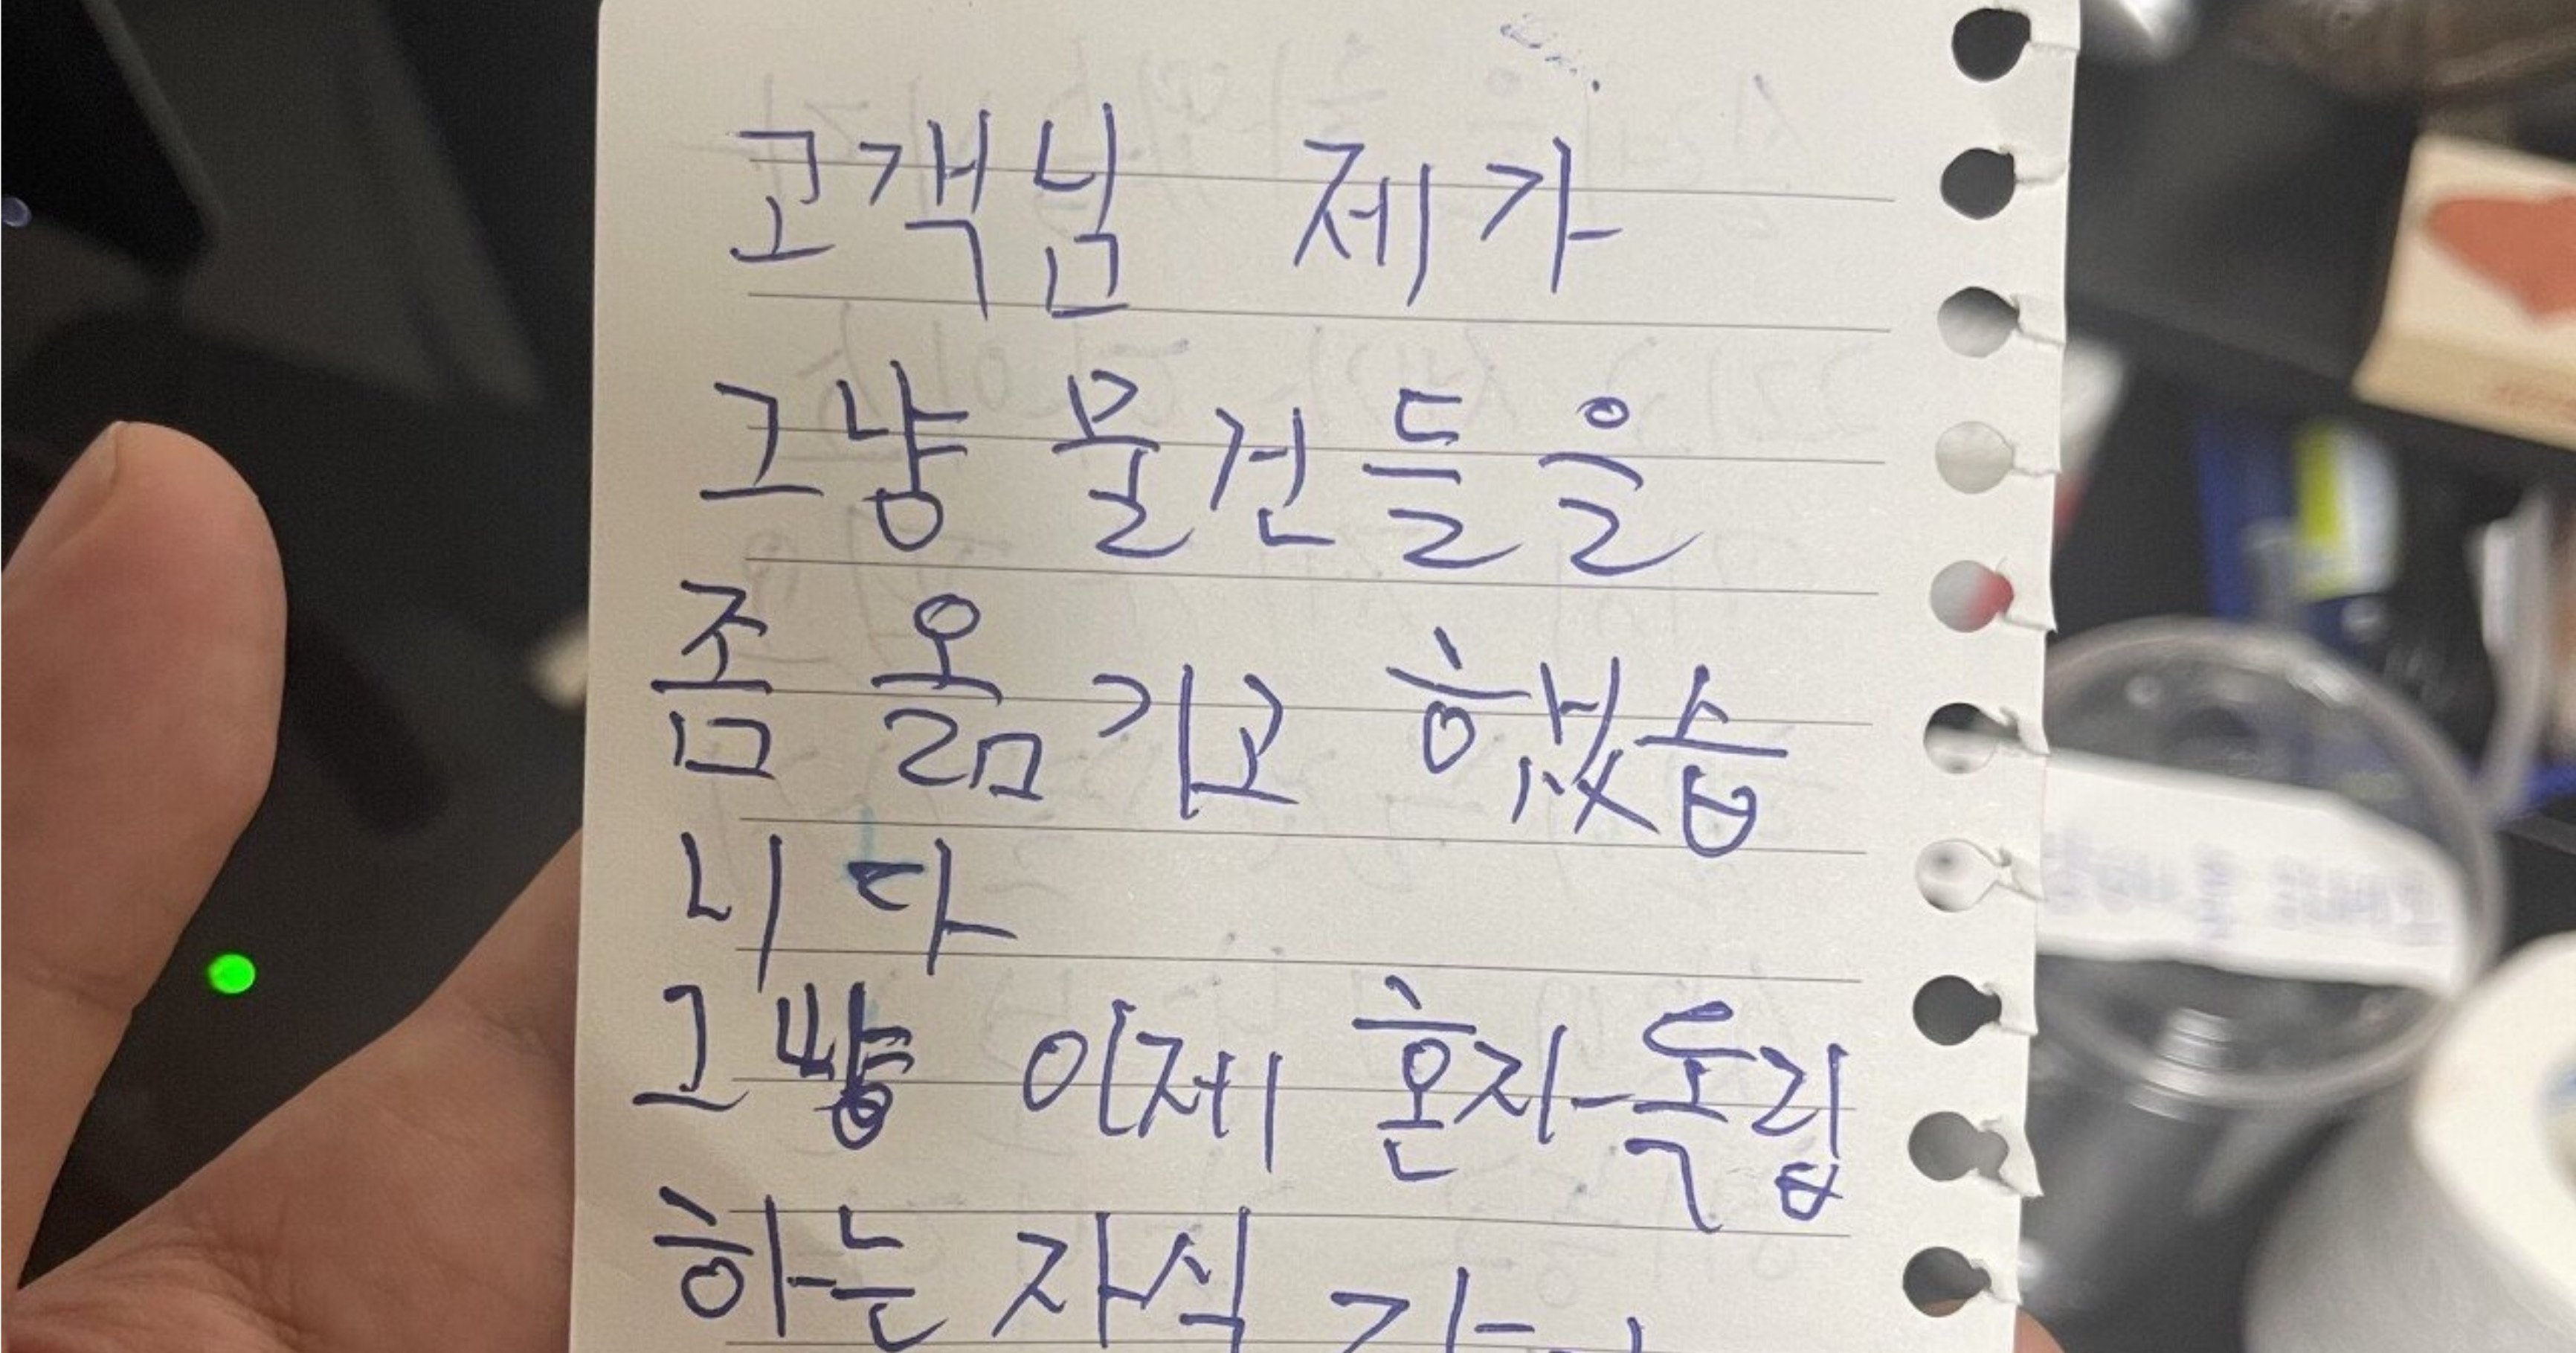 고객님 제가
그냥 물건들을
좀 옮기고 했습
니다
그냥 이제 혼자 독립
하는 자식